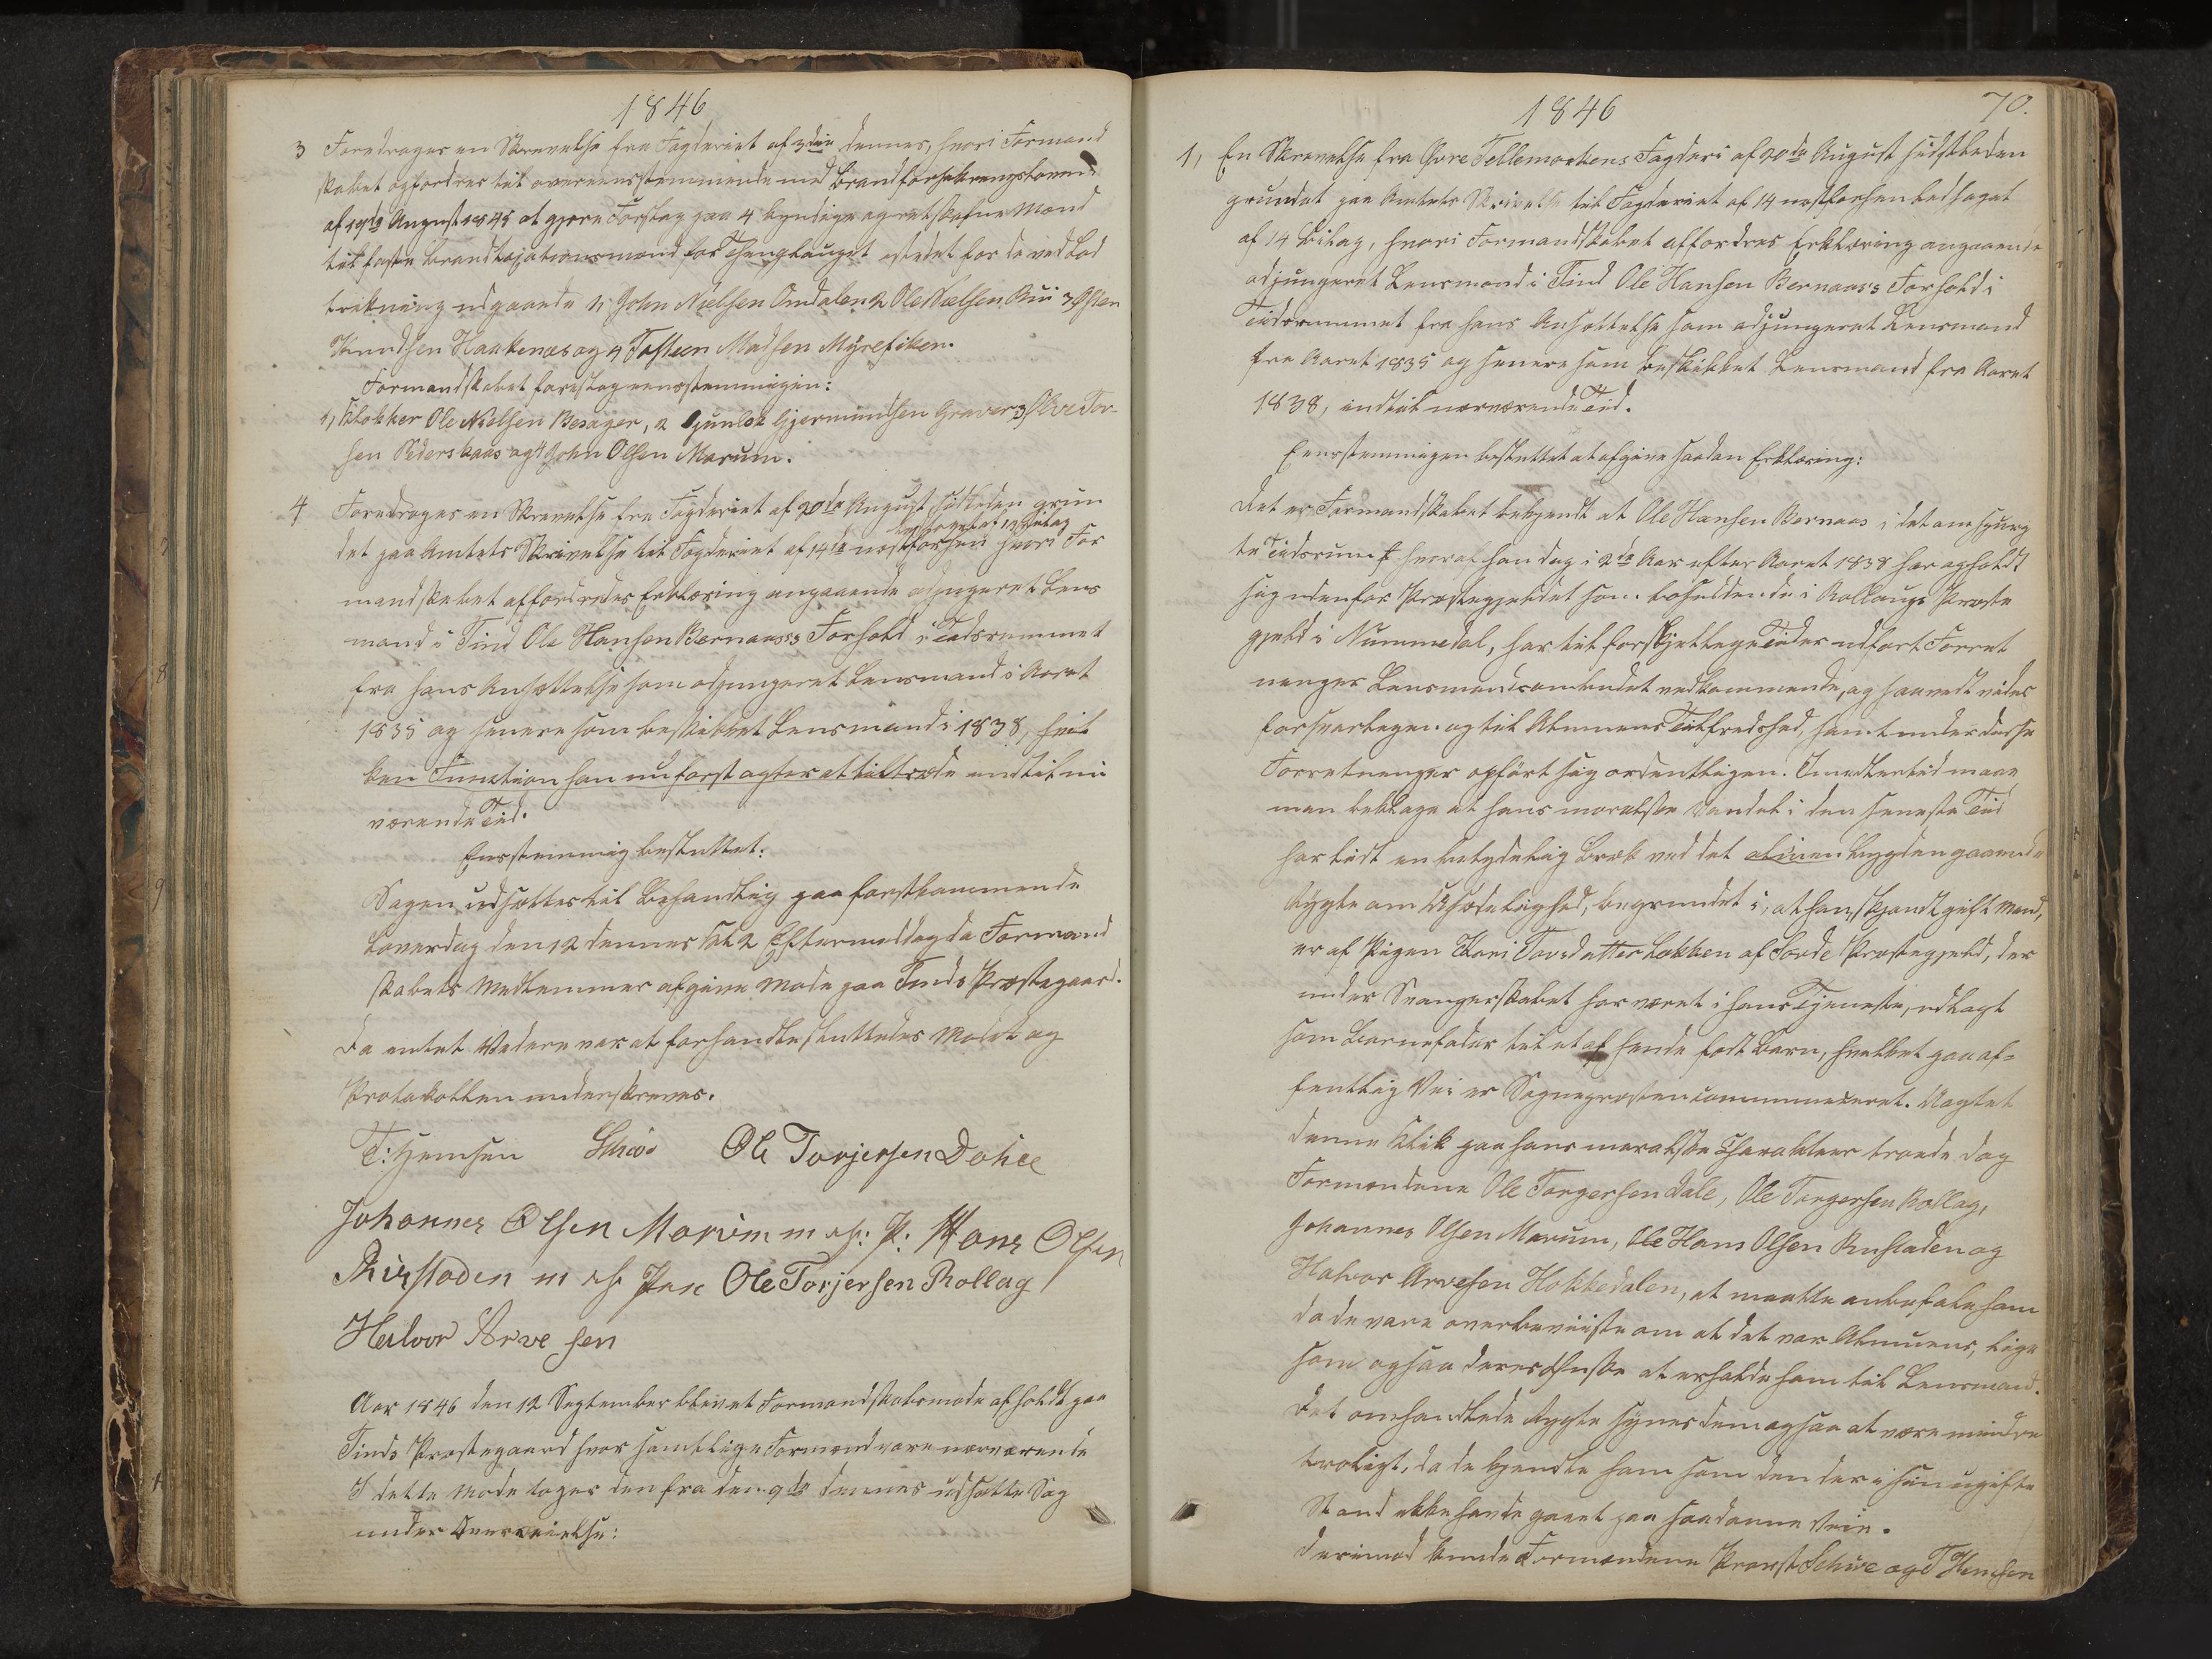 1846
3 Foredrages en Skrivelse fra Fogderiet af 3die dennes, hvori Formand
skabet opfordres til overeensstemmende med Brandforsikringsloven
af 19de August 1845 at gjøre Forslag paa 4 kyndige og retskafne Mænd
til faste Brandtaxationsmænd for Thinglauget istedet for de ved Lod
trækning udgaaende 1, John Nielsen Omdalen 2 Ole Nielsen Rui 3 Østen
Knudsen Haakenæs og 4 Tosteen Madsen Myrefiken.
Formandskabet foreslog eensstemmigen:
1, Klokker Ole Nielsen Besager, 2 Gunlek Gjermundsen Graver 3, Olve Tor-
sen Kiderskaas og 4 John Olsen Marum.
4 Foredrages en Skrivelse fra Fogderiet af 20de August sidstleden grun
ledsaget af 14 Bilag
det paa Amtets Skrivelse til Fogderiet af 14de næstforhen hvori For
mandskabet affordredes Erklæring angaaende adjungeret Lens
mand i Tind Ole Hansen Bernaas's Forhold i Tidsrummet
fra hans Ansættelse som adjungeret Lensmand i Aaret
1835 og senere som beskikket Lensmand i 1838, hvil
ken Function han nu først agter at tiltræde indtil nu
værende Tid.
Eensstemmig besluttet:
Sagen udsættes til Behandling paa førstkommende
Løverdag den 12 dennes Kl 2 Eftermiddag da Formand
skabets Medlemmer afgive Møde paa Tinds Præstegaard.
Da intet Videre var at forhandle sluttedes Mødet og
Protokollen underskreves.
T: Hemsen Schive Ole Torjersen Dohle
Johannes Olsen Marum m. p: P: Hans Olsen
Ruistaden m p Pen Ole Torjersen Rollag
Halvor Arvesen
Aar 1846 den 12 September blevet Formandskabsmøde afholdt paa
Tinds Præstegaard hvor samtlige Formænd vare nærværende
I dette Møde toges den fra den 9de dennes udsatte Sag
under Overveielse:
1846
70.
1, En Skrivelse fra Øvre Tellemarkens Fogderi af 20de August sidstleden
grundet paa Amtets Skrivelse til Fogderiet af 14 næstforhen ledsaget
af 14 Bilag, hvori Formandskabet affordres Erklæring angaaende
adjungeret Lensmand i Tind Ole Hansen Bernaas's Forhold i
Tidsrummet fra hans Ansættelse som adjungeret Lensmand
fra Aaret 1835 og senere som beskikket Lensmand fra Aaret
1838, indtil nærværende Tid.
Eensstemmigen besluttet at afgive saadan Erklæring:
Det er Formandskabet bekjendt at Ole Hansen Bernaas i det omspurg
te Tidsrum hvoraf han dog i 2de Aar efter Aaret 1838 har opholdt
sig udenfor Præstegjeldet som bosiddende i Rollaugs Præste
gjeld i Nummedal, har til forskjellige Tider udført Forret
ninger Lensmandsombudet vedkommende, og saavidt vides
forsvarligen og til Almuens Tilfredshed, samt under disse
Forretninger opført sig ordentligen. Imidlertid maae
man beklage at hans moralske Vandel i den seneste Tid
har lidt en betydelig Bræk ved det i Bygden gaaende
Rygte om Usædelighed, begrundet i, at han, skjøndt gift Mand,
er af Pigen Kari Torsdatter Løkken af Soude Præstegjeld, der
under Svangerskabet har været i hans Tjeneste, udlagt
som Barnefader til et af hende født Barn, hvilket paa of-
fentlig Vei er Sognepræsten communiceret. Uagtet
denne Klik paa hans moralske Charakteer troede dog
Formændene Ole Torgersen Dale, Ole Torgersen Rollag,
Johannes Olsen Marum, Ole Hans Olsen Ruistaden og
Halvor Arvesen Hokkedalen, at maatte anbefale ham
da de vare overbeviiste om at det var Almuens, lige
som ogsaa deres Ønske at erholde ham til Lensmand.
Det omhandlede Rygte synes dem ogsaa at være mindre
troligt, da de kjendte ham som den der i sin ugifte
Stand ikke havde gaaet paa saadanne Veie.
Derimod kunde Formændene Provst Schive og T Hemsen